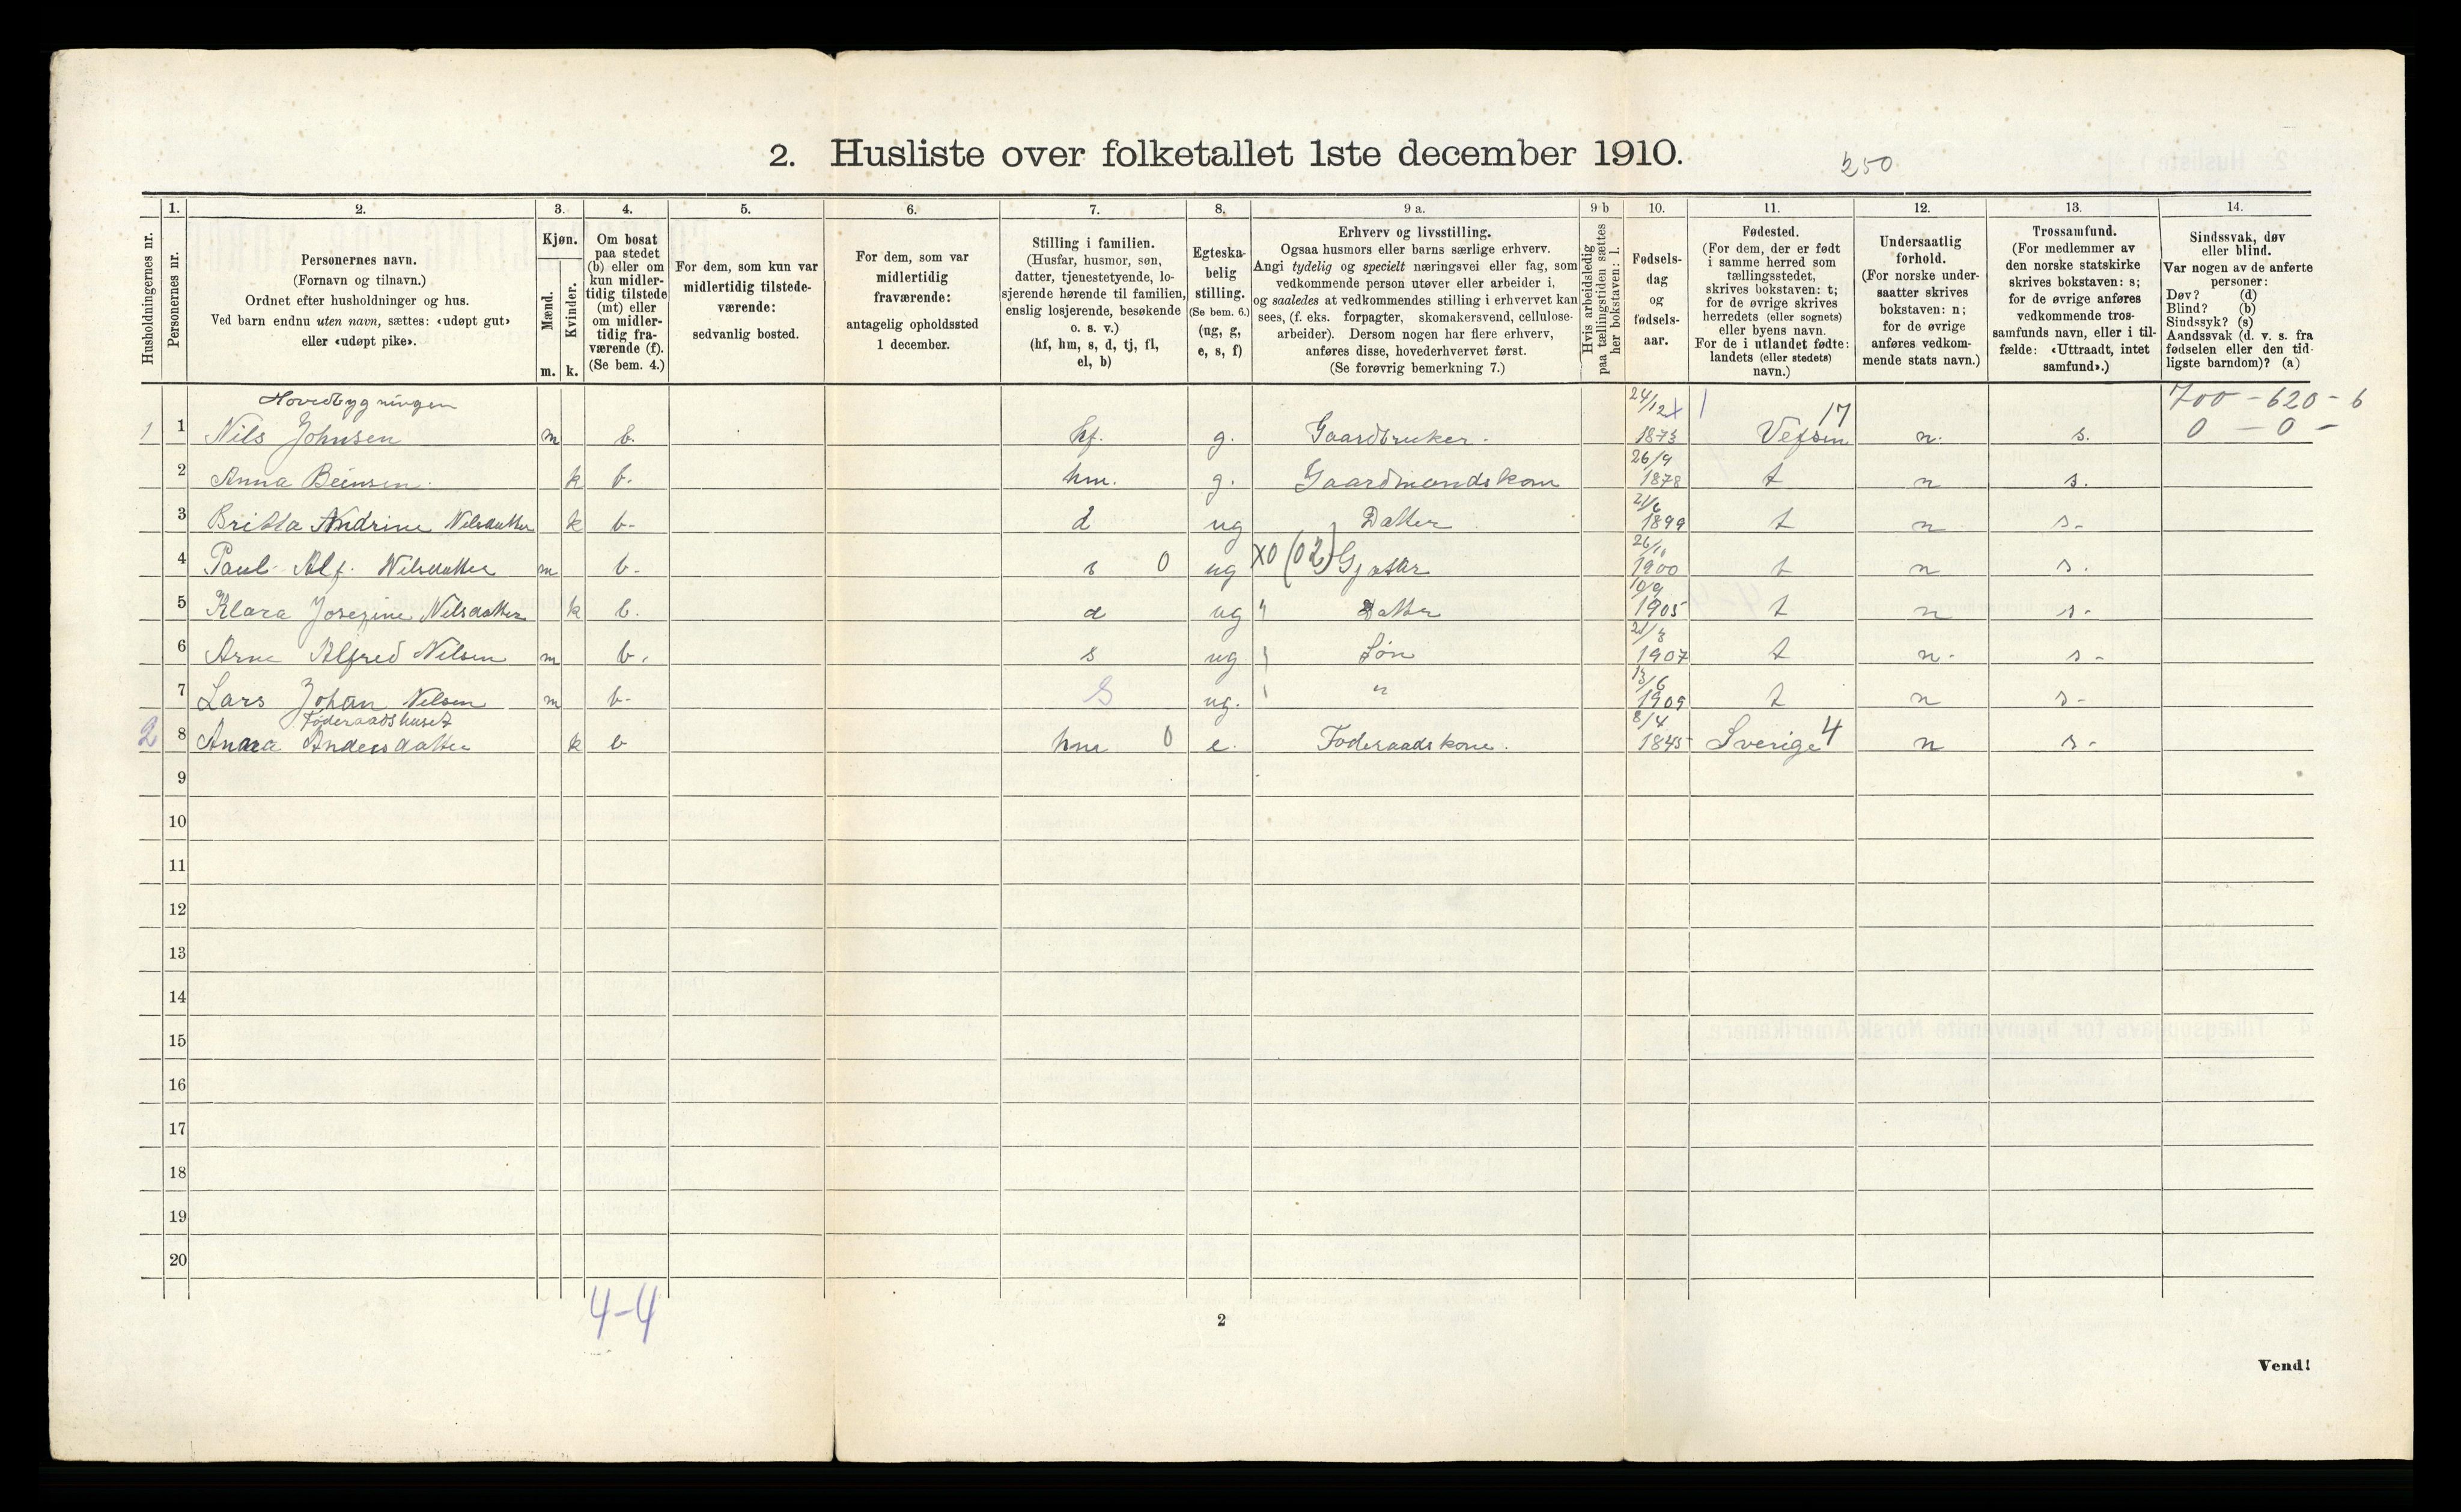 2. Husliste over folketallet 1ste december 1910.
250
Husholdningernes nr.
1.
Personernes nr.
2.
Personernes navn.
(Fornavn og tilnavn.)
Ordnet efter husholdninger og hus.
Ved barn endnu uten navn, sættes: «udøpt gut»
eller «udøpt pike».
3.
Kjøn.
Mænd.
Kvinder.
m. k.
4.
Om bosat
paa stedet
(b) eller om
kun midler-
tidig tilstede
(mt) eller
om midler-
tidig fra-
værende (f).
(Se bem. 4.)
5.
For dem, som kun var
midlertidig tilstede-
værende:
sedvanlig bosted.
6.
For dem, som var
midlertidig
fraværende:
antagelig opholdssted
1 december.
7.
Stilling i familien.
(Husfar, husmor, søn,
datter, tjenestetyende, lo-
sjerende hørende til familien,
enslig losjerende, besøkende
o. s. v.)
(hf, hm, s, d, tj, fl,
el, b)
8.
Egteska-
belig
stilling.
(Se bem. 6.)
(ug, g,
e, s, f)
9 a.
Erhverv og livsstilling.
Ogsaa husmors eller barns særlige erhverv.
Angi tydelig og specielt næringsvei eller fag, som
vedkommende person utøver eller arbeider i,
og saaledes at vedkommendes stilling i erhvervet kan
sees, (f. eks. forpagter, skomakersvend, cellulose-
arbeider). Dersom nogen har flere erhverv,
anføres disse, hovederhvervet først.
(Se forøvrig bemerkning 7.)
9 b
Hvis arbeidsledig
paa tællingstiden sættes
her bokstaven: l.
10.
Fødsels-
dag
og
fødsels-
aar.
11.
Fødested.
(For dem, der er født
i samme herred som
tællingsstedet,
skrives bokstaven: t;
for de øvrige skrives
herredets (eller sognets)
eller byens navn.
For de i utlandet fødte:
landets (eller stedets)
navn.)
12.
Undersaatlig
forhold.
(For norske under-
saatter skrives
bokstaven: n;
for de øvrige
anføres vedkom-
mende stats navn.)
13.
Trossamfund.
(For medlemmer av
den norske statskirke
skrives bokstaven: s;
for de øvrige anføres
vedkommende tros-
samfunds navn, eller i til-
fælde: «Uttraadt, intet
samfund».)
14.
Sindssvak, døv
eller blind.
Var nogen av de anførte
personer:
Døv? (d)
Blind? (b)
Sindssyk? (s)
Aandssvak (d. v. s. fra
fødselen eller den tid-
ligste barndom)? (a)
Hovedbygningen 24/12 17 700 - 620 - 6
1 1 Nils Johnsen m b. hf. g. Gaardbruker. 1873 Vefsen n. s. 0 - 0 -
2 Anna k b. hm. g. Gaardmandskone 26/9 1878 t n s.
3 Britta Andrine Nilsdatter k b- d ug Datter 21/6 1899 t n s-
4 Paul Alf. Nilsdatter m b- s 0 ug X0 (02) Gjæter 26/10 1900 t n s.
5 Klara Josefine Nilsdatter k b. d ug " Datter 10/9 1905 t n s-
6 Arne Alfred Nilsen m b. s ug " Søn 21/3 1907 t n- s-
7 Lars Johan Nilsen m b- S ug. " " 13/6 1909 t n s-
Føderaadshuset
2 8 Anna Andersdatter k b hm 0 e. Føderaadskone. 8/4 1845 Sverige 4 n s-
9
10
11
12
13
14
15
16
17
18
19
20
4-4
2
Vend!